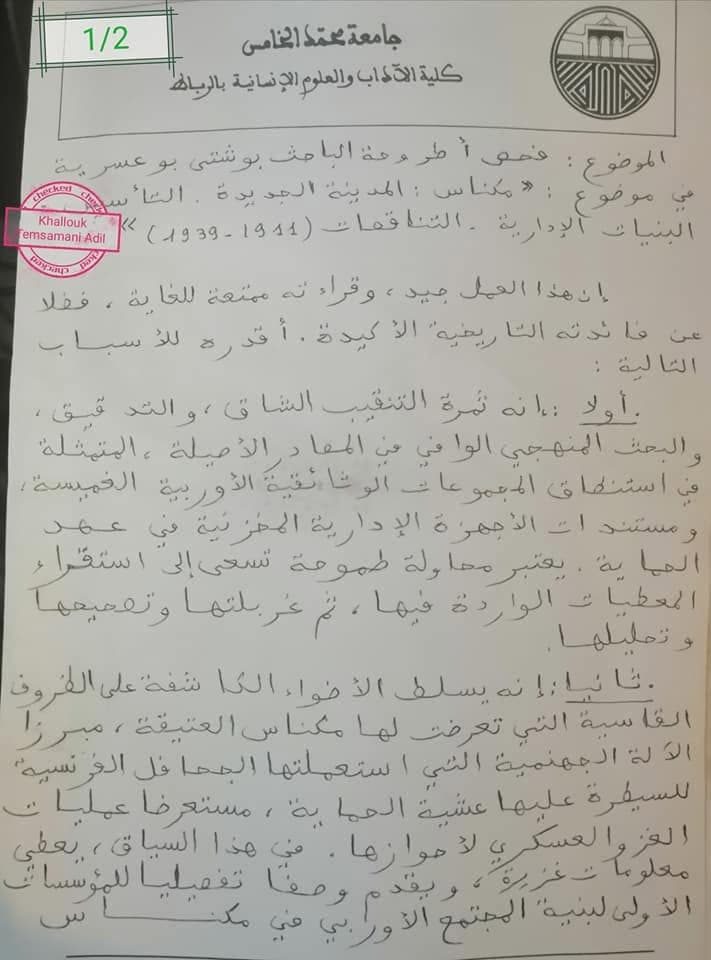 1/2
جامعة محمد الخامس
كلية الآداب والعلوم الإنسانية بالرباط
الموضوع : فحص أطروحة الباحث بوشتى بوعسرية
في موضوع : «مكناس : المدينة الجديدة . التأسيس
البنيات الإدارية . التناقضات (1911-1939)»
checked
Khallouk
Temsamani Adil
checked
إن هذا العمل جيد ، وقراءته ممتعة للغاية ، فضلا
عن فائدته التاريخية الأكيدة . أقدره للأسباب
التالية :
.أولا : إنه ثمرة التنقيب الشاق ، والتدقيق ،
والبحث المنهجي الوافي في المصادر الأصيلة ، المتمثلة
في استنطاق المجموعات الوثائقية الأوربية الغميسة ،
ومستندات الأجهزة الإدارية المخزنية في عهد
الحماية . يعتبر محاولة طموحة تسعى إلى استقراء
المعطيات الواردة فيها ، ثم غربلتها وتصحيحها
وتحليلها .
.ثانيا : إنه يسلط الأضواء الكاشفة على الظروف
القاسية التي تعرضت لها مكناس العتيقة ، مبرزا
الآلة الجهنمية التي استعملتها الجحافل الفرنسية
للسيطرة عليها عشية الحماية ، مستعرضا عمليات
الغزو العسكري لأحوازها . في هذا السياق ، يعطي
معلومات غزيرة ، ويقدم وصفا تفصيليا للمؤسسات
الأولى لبنية المجتمع الأوربي في مكناس